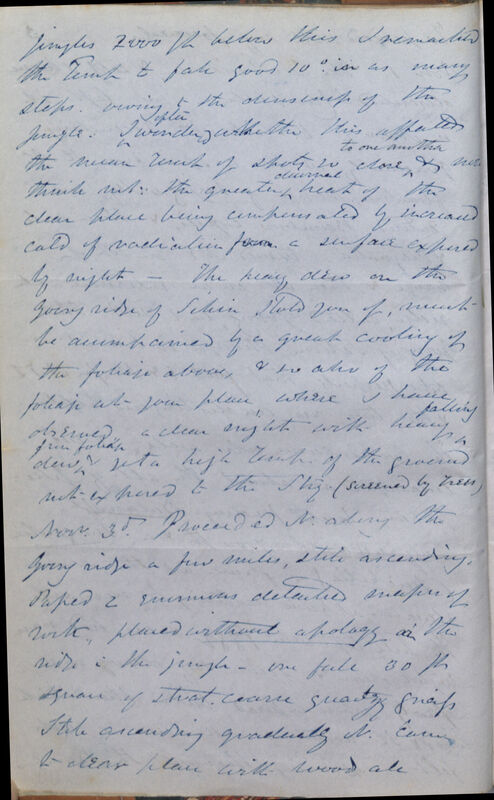 jungles 7000 ft below this I remarked
the Temp to fall good 10° in as many
steps. owing to the denseness of the
jungle: I often wonder whether this affected
the mean Temp of spots so close to one another & now
think not: the greater diurnal heat of the
clear place being compensated by increased
cold of radiation from a surface exposed
by night — The heavy dew on the
Goong ridge of I told you of, must
be accompanied by a great cooling of
the foliage above, & so also of the
foliage at your place where I have
observed a clear night with heavy falling
dew, from foliage yet a high Temp. of the ground
not exposed to the Sky. (screened by trees)
Nov. 3d. Proceeded N. along the
Goong ridge a few miles, still ascending.
Passed 2 enormous detached masses of
rock, placed without apology in the
ridge in the jungle — one full 30 ft
square of strat. coarse quartzy gneiss
Still ascending gradually N. came
to clear place with wood all